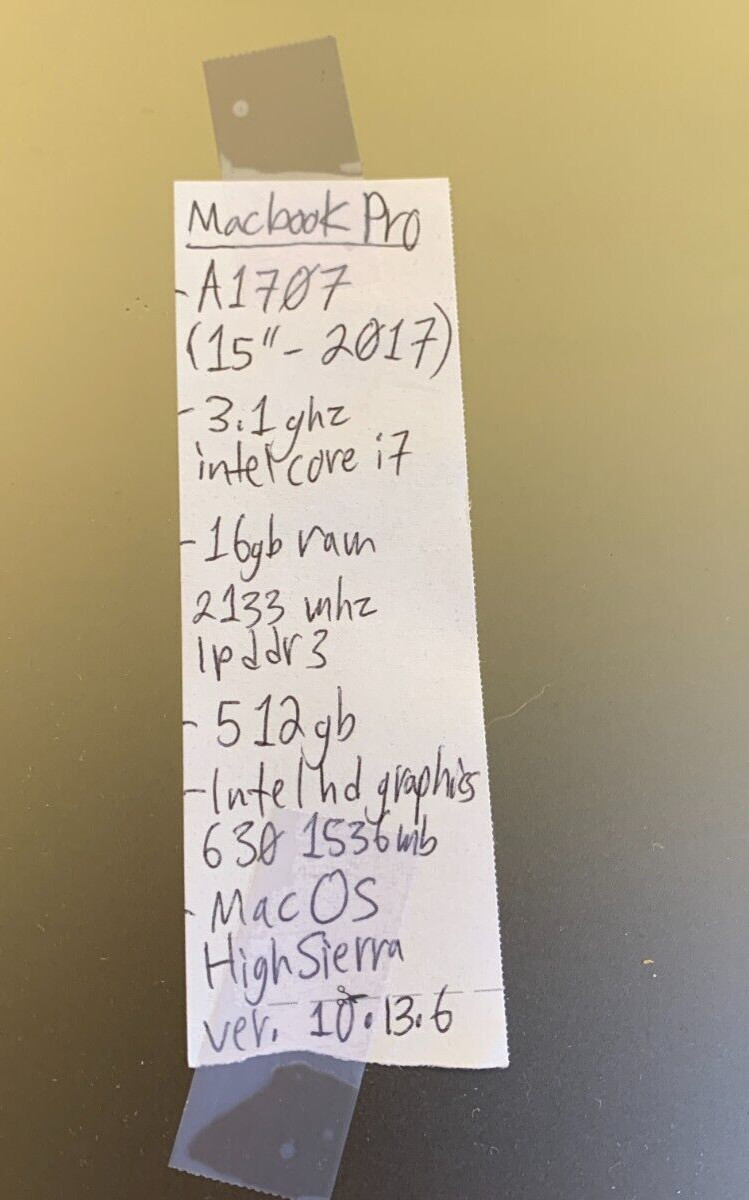 Macbook Pro
- A1707
(15" - 2017)
- 3.1 ghz
intel core i7
- 16gb ram
2133 mhz
lpddr3
- 512gb
- Intel hd graphics
630 1536mb
- MacOS
High Sierra
ver. 10.13.6